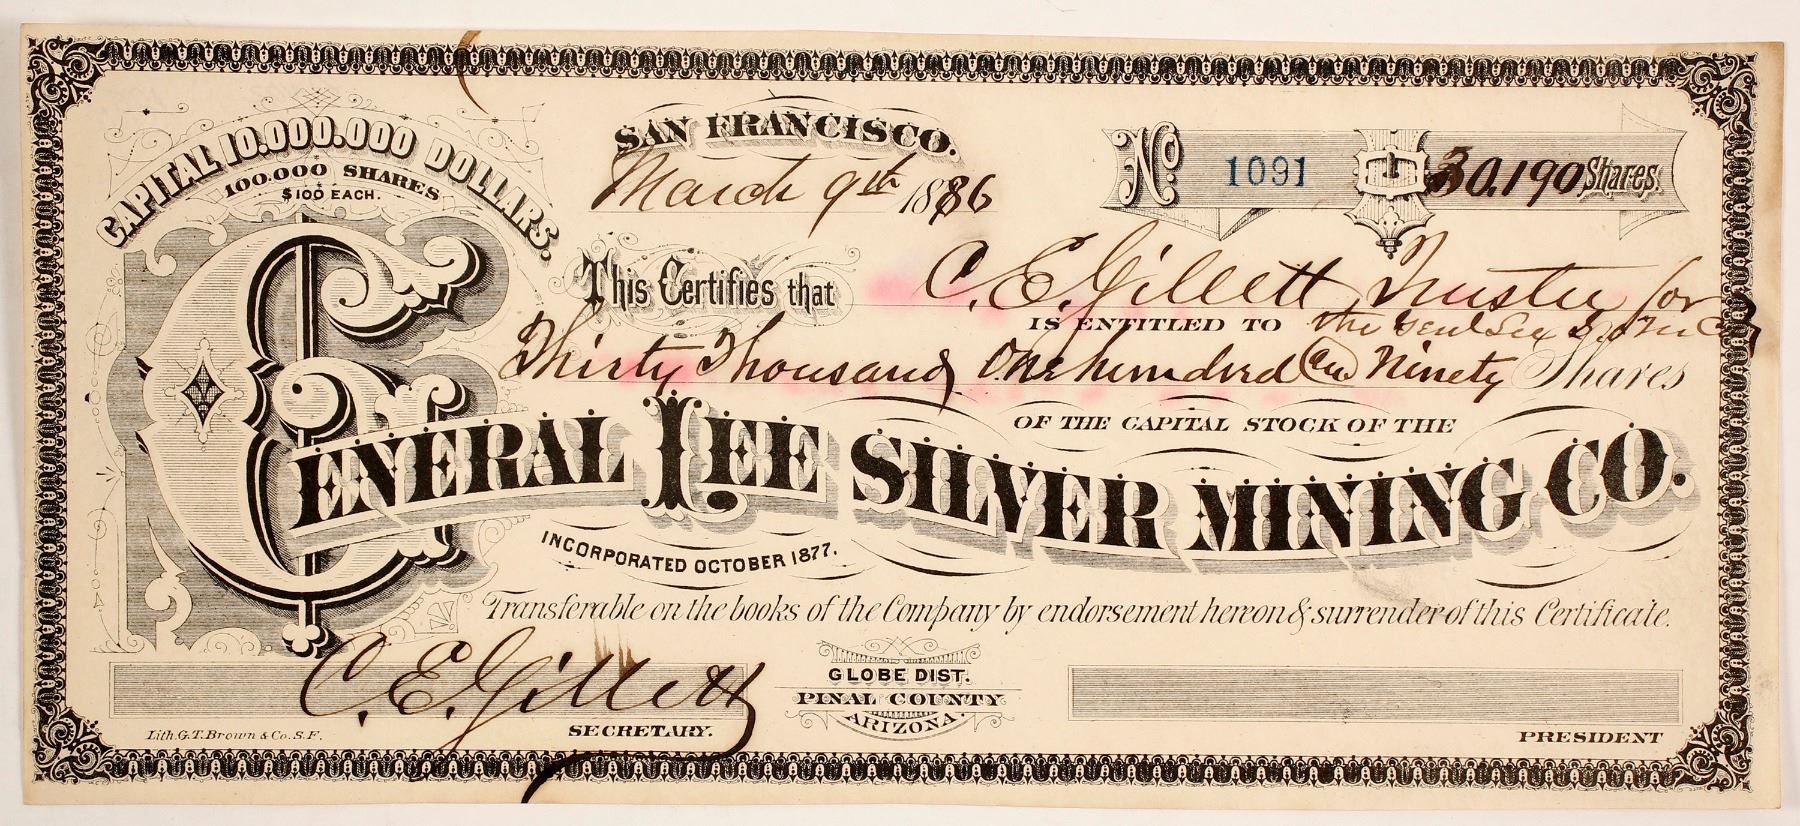 CAPITAL 10.000.000 DOLLARS.
100.000 SHARES
$100 EACH.
SAN FRANCISCO.
March 9th 1886
No. 1091 30,190 Shares.
This Certifies that C. E. Gillett Trustee for
IS ENTITLED TO the Genl Lee S. M. Co
Thirty Thousand One hundred and Ninety Shares
OF THE CAPITAL STOCK OF THE
GENERAL LEE SILVER MINING CO.
INCORPORATED OCTOBER 1877.
Transferable on the books of the Company by endorsement hereon & surrender of this Certificate.
C. E. Gillett
SECRETARY.
GLOBE DIST.
PINAL COUNTY
ARIZONA.
PRESIDENT
Lith. G. T. Brown & Co. S. F.